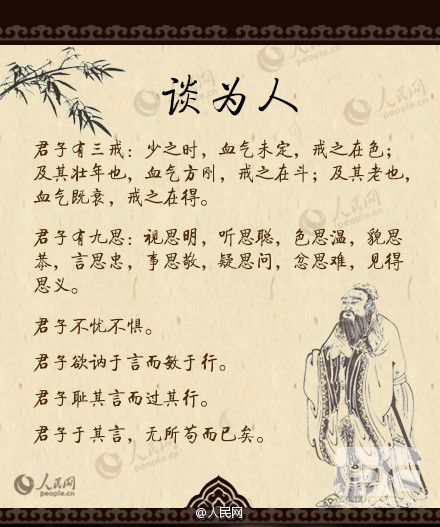 谈为人
君子有三戒：少之时，血气未定，戒之在色；
及其壮年也，血气方刚，戒之在斗；及其老也，
血气既衰，戒之在得。
君子有九思：视思明，听思聪，色思温，貌思
恭，言思忠，事思敬，疑思问，忿思难，见得
思义。
君子不忧不惧。
君子欲讷于言而敏于行。
君子耻其言而过其行。
君子于其言，无所苟而已矣。
人民网
people.cn
@人民网